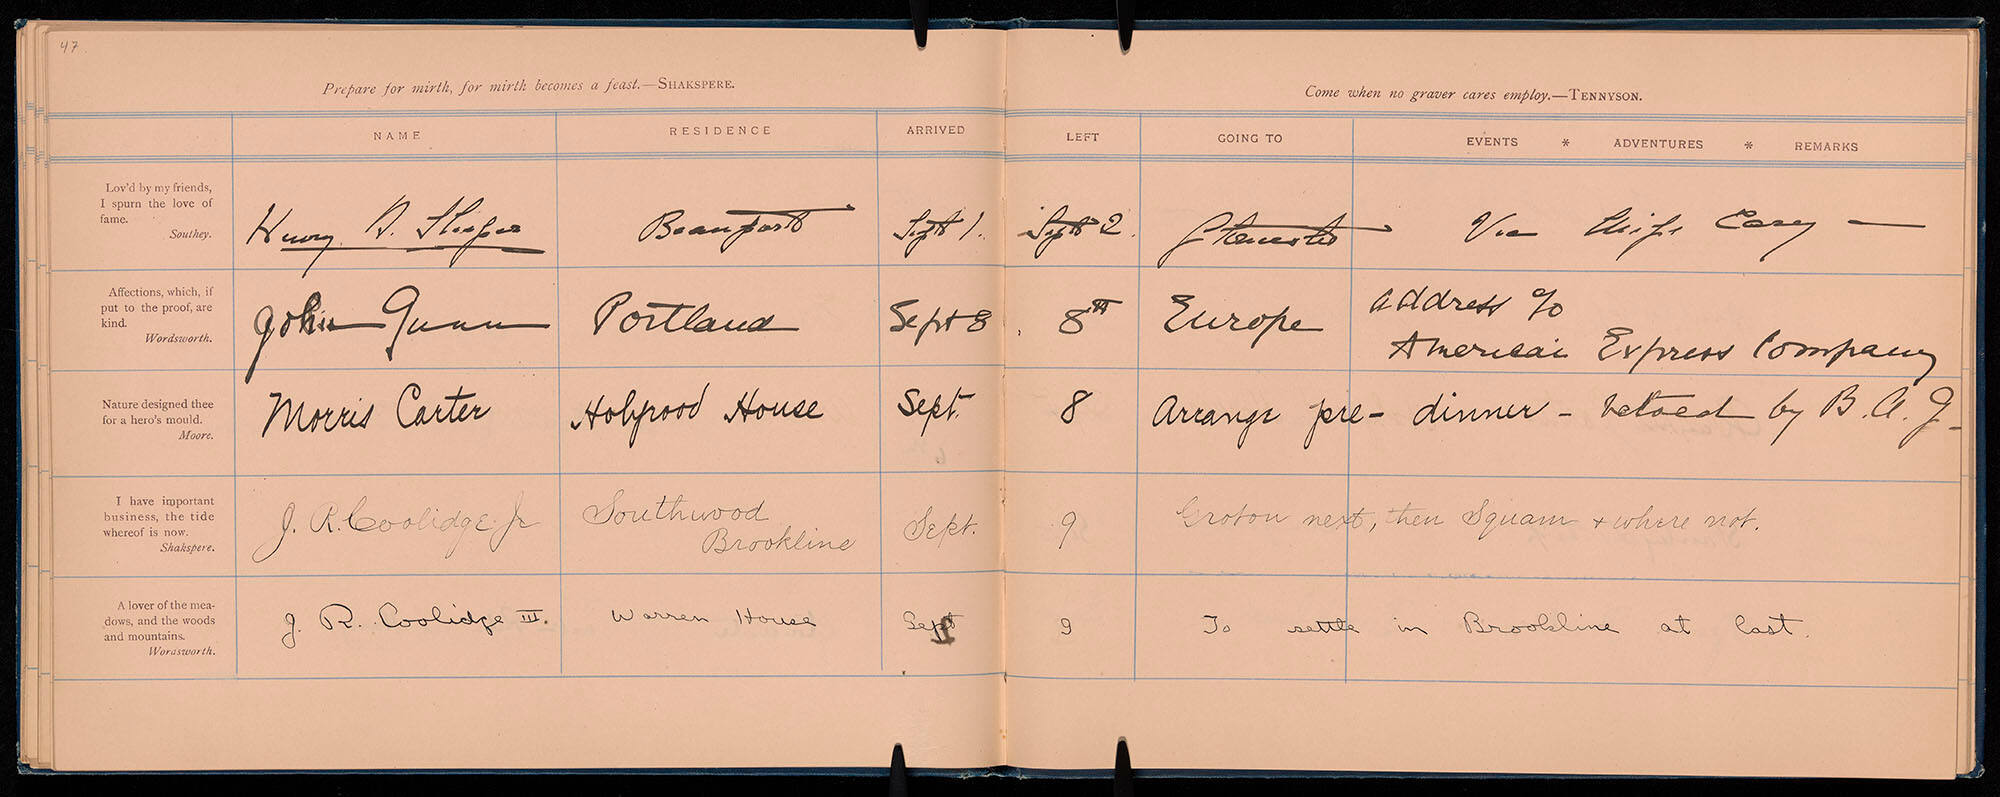 47.
Prepare for mirth, for mirth becomes a feast.—SHAKSPERE.
Come when no graver cares employ.—TENNYSON.
NAME RESIDENCE ARRIVED LEFT GOING TO EVENTS * ADVENTURES * REMARKS
Lov'd by my friends,
I spurn the love of
fame.
Southey.
Henry D. Sleeper Beauport Sept 1. Sept 2. Gloucester Via Ships Easy —
Affections, which, if
put to the proof, are
kind.
Wordsworth.
John Gunn Portland Sept 8 8th Europe Address c/o
American Express Company
Nature designed thee
for a hero's mould.
Moore.
Morris Carter Holyrood House Sept. 8 Arrange pre-dinner - vetoed by B. A. G-
I have important
business, the tide
whereof is now.
Shakspere.
J. R. Coolidge Jr Southwood
Brookline Sept. 9 Groton next, then Squam + where not.
A lover of the mea-
dows, and the woods
and mountains.
Wordsworth.
J. R. Coolidge III. Warren House Sept 9 To settle in Brookline at last.